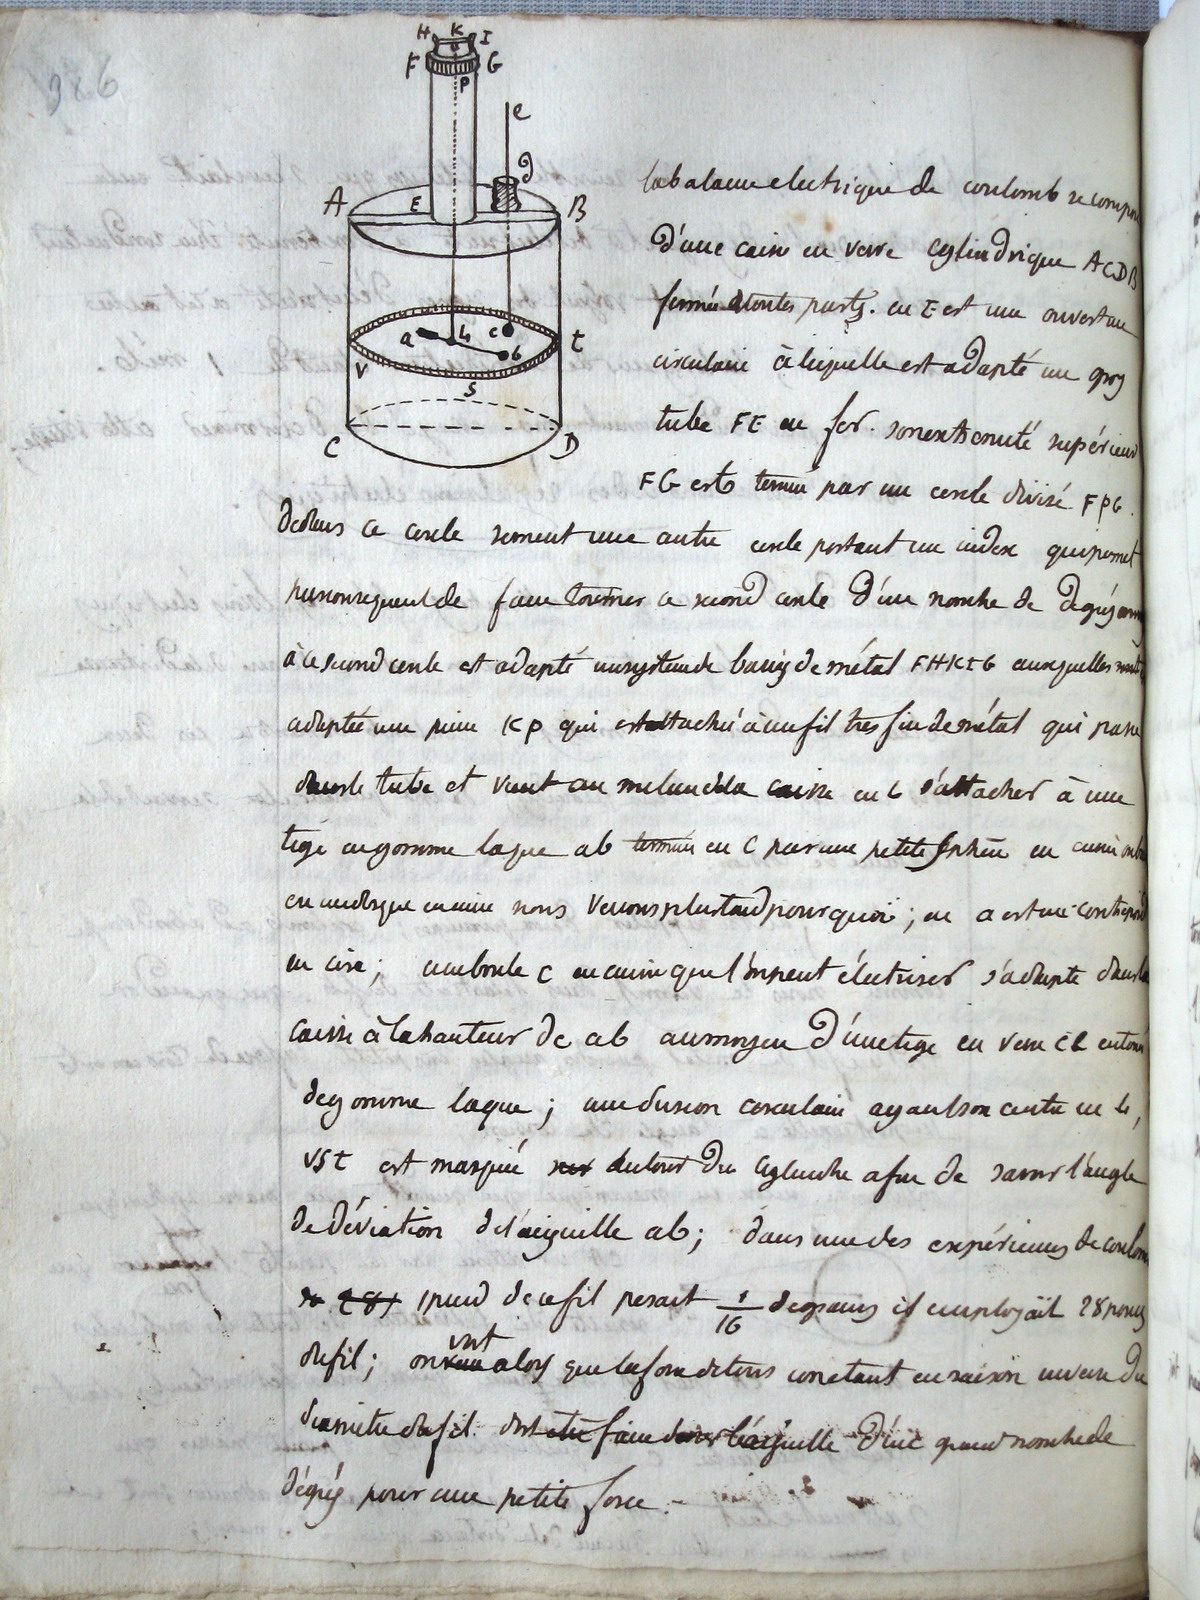 H K I
F G
P
e
d
A E B
a L c t
b
V
S
C D
la balance electrique de coulomb se compose
D'une caisse en verre cylindrique ACDB
fermée de toutes parts. en E est une ouverture
circulaire à laquelle est adapté un gros
tube FE en fer. son extremité supérieure
FG est terminé par un cercle divisé FPG.
Dedans ce cercle se meut une autre cercle portant un index qui permet
par conséquent de faire tourner ce second cercle D'une nombre de degrés
à ce second cercle est adapté un système de barres de métal FHKIG auxquelles
adaptée une pince KP qui est attaché à un fil tres fin de métal qui passe
dans le tube et vient au milieu de la caisse en L s'attacher à une
tige en gomme laque ab terminée en C par une petite sphère en cuivre
en nous verrons plus tard pourquoi ; en a est un contrepoids
en cire ; une boule C en cuivre que l'on peut électriser s'adapte dans la
caisse à la hauteur de ab au moyen D'une tige en verre ce entouré
de gomme laque ; une division circulaire ayant son centre en L,
VSt est marquée autour Du cylindre afin de savoir l'angle
de déviation de l'aiguille ab ; dans une des expériences de coulomb
1 pied de ce fil pesait 1/16 de grains il employait 28 pouces
de fil ; on vit alors que la force de torsion constant en raison inverse Du
diametre du fil doit faire l'aiguille D'un grand nombre de
dégrés pour une petite force. -